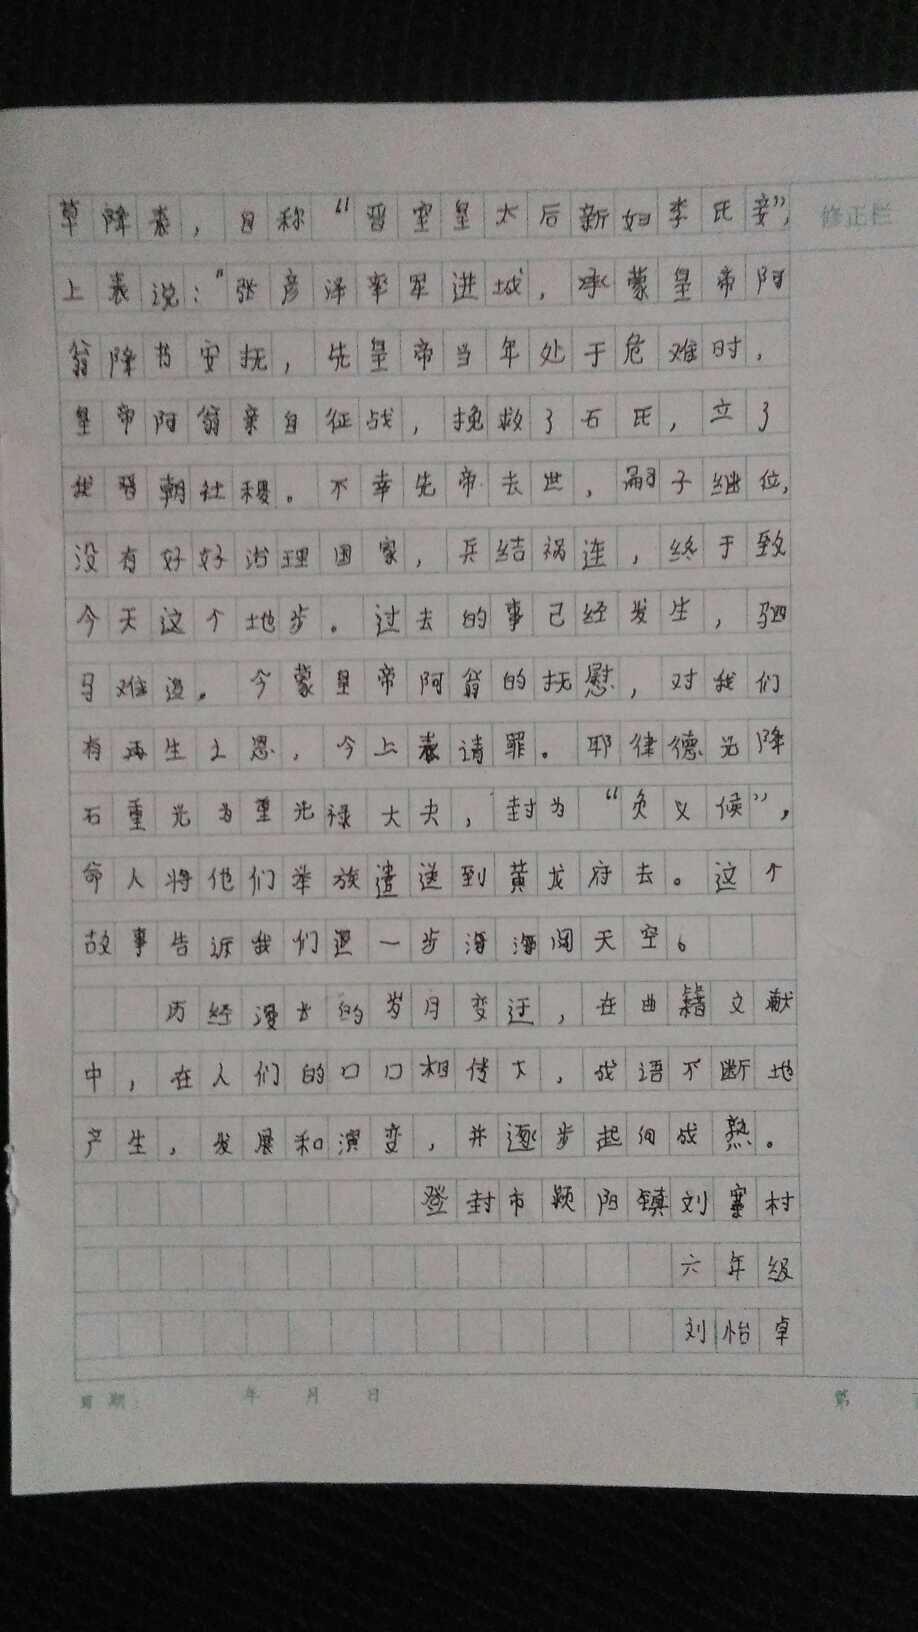 草降表，自称“晋室皇太后新妇李氏妾”，
修正栏
上表说：“张彦泽率军进城，承蒙皇帝阿
翁降书安抚，先皇帝当年处于危难时，
皇帝阿翁亲自征战，挽救了石氏，立了
我晋朝社稷。不幸先帝去世，嗣子继位，
没有好好治理国家，兵结祸连，终于致
今天这个地步。过去的事已经发生，驷
马难追。今蒙皇帝阿翁的抚慰，对我们
有再生之恩，今上表请罪。耶律德光降
石重光为重光禄大夫，封为“负义候”，
命人将他们举族遣送到黄龙府去。这个
故事告诉我们退一步海海阔天空。
历经漫长的岁月变迁，在曲籍文献
中，在人们的口口相传下，成语不断地
产生，发展和演变，并逐步起向成熟。
登封市颍阳镇刘寨村
六年级
刘怡卓
日期： 年 月 日
第